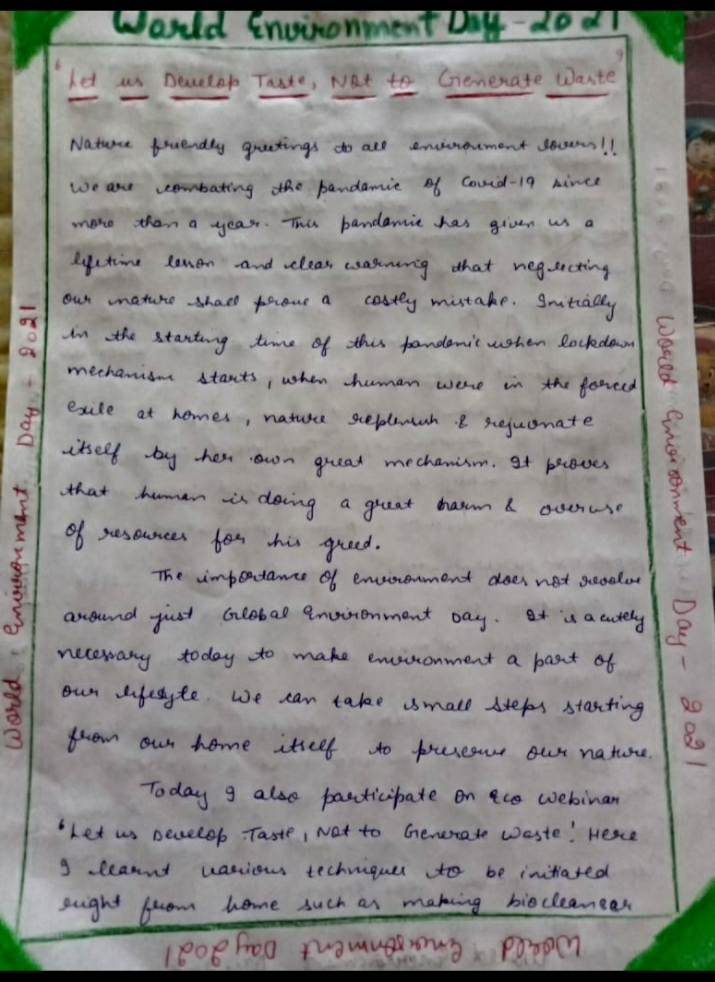 World Environment Day - 2021
'Let us Develop Taste, Not to Generate Waste'
Nature friendly greetings to all environment lovers!!
We are combating the pandamic of Covid-19 since
more than a year. This pandamic has given us a
lifetime lesson and clear warning that neglecting
our nature shall prove a costly mistake. Initially
in the starting time of this pandemic when lockdown
mechanism starts, when human were in the forced
exile at homes, nature replenish & rejuvnate
itself by her own great mechanism. It proves
that human is doing a great harm & overuse
of resources for his greed.
The importance of environment does not revolve
around just Global Environment Day. It is acutely
necessary today to make environment a part of
our lifestyle. We can take small steps starting
from our home itself to preserve our nature.
Today I also participate on Eco Webinar
'Let us Develop Taste, Not to Generate Waste'. Here
I learnt various techniques to be initiated
right from home such as making biocleansar
World Environment Day - 2021
World Environment Day - 2021
World Environment Day 2021